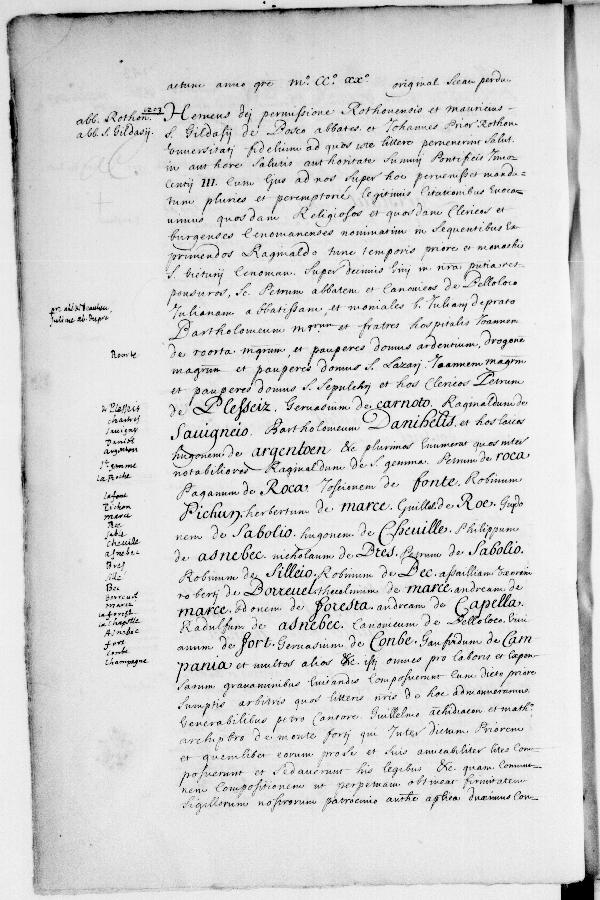 actum anno gre mº. CCº. XXº. original sceau perdu.
abb. Rothon. 1203
abb. S. Gildasij.
Herueus dej permissione Rothonensis et mauricius
S. Gildasij de Bosco abbates. et Iohannes Prior Rothon
Vniuersitatj fidelium ad quos iste littere peruenerint Salut.
in authore Salutis authoritate Summj Pontificis Inno
Centij III. Cum Ejus ad nos Super hoc peruenisset manda-
tum pluries et peremptorie legitimis Citationibus Euoca-
uimus quosdam Religiosos et quosdam Clericos et
burgenses Cenomanenses nominatim in Sequentibus Ex
primendos Raginaldo tunc temporis priore et monachis
S. Victurij Cenoman. Super decimis in nra putia res-
ponsuros, Sc. Petrum abbatem et Canonicos de Belloloco
Iulianam abbatissam, et moniales b. Iulianj de prato
Bartholomeum mgrum et fratres hospitalis Ioannem
de roorta mgrum, et pauperes domus ardentium, drogone
magrum et pauperes domus S. Lazarj. Ioannem magrm
et pauperes domus S. Sepulchrj et hos Clericos Petrum
de Plesseiz. Geruasium de Carnoto. Raginaldum de
Sauigneio. Bartholomeum Danibelis. et hos laicos
hugonem de argentoen &c plurimos Enumerat quos inter
notabiliores Raginaldum de S. gemma. Petrum de roca
Paganum de Roca Iosceionem de fonte. Robinum
Pichun, herbertum de marce. Guillel. de Roe. Guido
nem de Sabolio. hugonem de Cheuille. Philippum
de asnebec. nicholaum de Bres. Petrum de Sabolio.
Robinum de Silleio. Robinum de Bec. assailliam Uxorem
robertj de Dorreuel thecelinum de marce. andream de
marce. Odonem de foresta. andream de Capella.
Radulfum de asnebec. Canonicum de Belloloco. Viui
anum de fort. Geruasium de Conbe. Gaufridum de Cam
pania et multos alios &c. istj omnes pro laboris et Expen
sarum grauaminibus Euitandis Composuerunt Cum dicto priore
Sumptis arbitris quos litteris nris de hoc admoneramus
Venerabilibus petro Cantore. Guillelmo achidiacon et math.
archipbro de monte fortj qui Inter dictum Priorem
et quemlibet eorum pro se et Suis amicabiliter lites Com
posuerunt et Sedauerunt his legibus &c. quam Commu-
nem Compositionem ut perpetuam obtineat firmitatem
Sigillorum nostrorum patrocinio authe aplica duximus Con-
pr. abb. de beaulieu
Juliane ab. du pre
Roorte
le Plesseis
chartres
Sauigny
Danibe
argenton
Ste gemme
la Roche
la fone
Pichon
marce
Roe
Sable
Cheuille
asnebec
Bres
Sillé
Bec
Dorreueil
marce
la forest
la chapelle
Asnebec
fort
Combe
Champagne